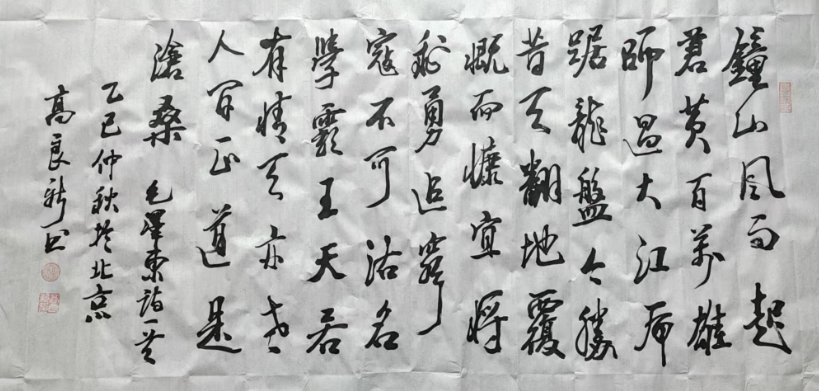 鐘山風雨起
蒼黃百萬雄
師過大江虎
踞龍盤今勝
昔天翻地覆
慨而慷宜將
剩勇追窮
寇不可沽名
學霸王天若
有情天亦老
人間正道是
滄桑 毛澤東詩一首
乙巳仲秋於北京
高良新书